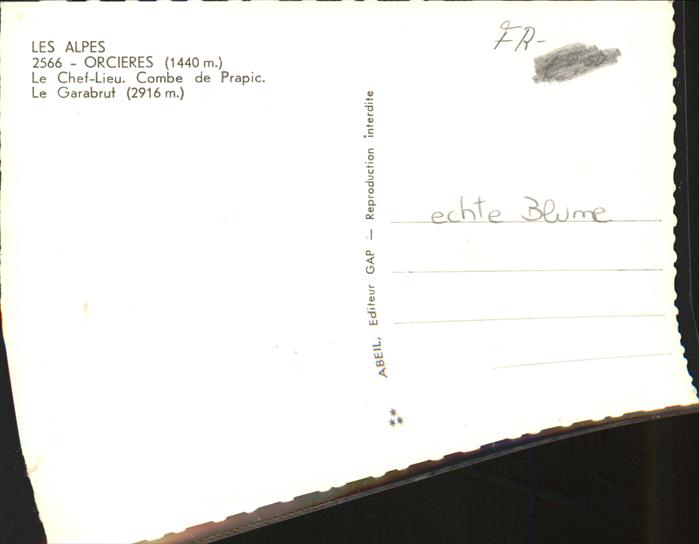 LES ALPES
2566 - ORCIERES (1440 m.)
Le Chef-Lieu. Combe de Prapic.
Le Garabrut (2916 m.)
FR-
ABEIL, Editeur GAP — Reproduction interdite
echte Blume